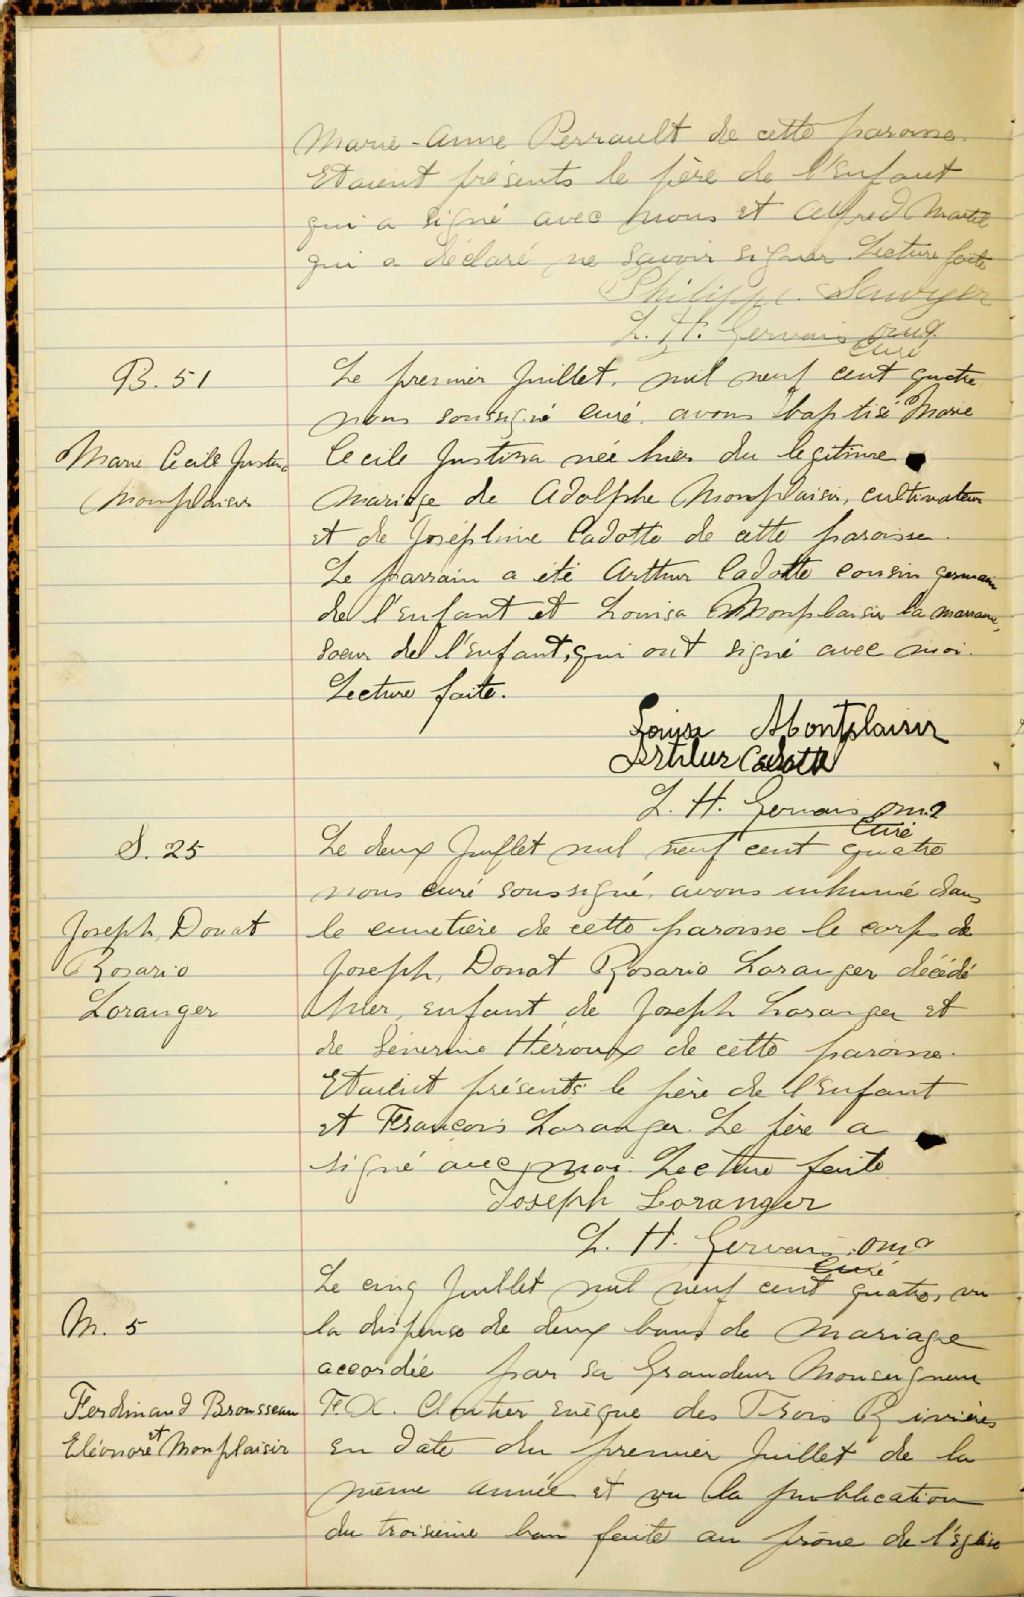 Marie-Anne Perrault de cette paroisse.
Etaient présents le père de l'Enfant
qui a signé avec nous et Alfred Martel
qui a déclaré ne savoir signer. Lecture faite
Philippe Sawyer
L. H. Gervais
Curé
B. 51
Marie Cecile Justina
Monplaisir
Le premier Juillet, mil neuf cent quatre
nous soussigné curé, avons baptisé Marie
Cecile Justina née hier du legitime
Mariage de Adolphe Monplaisir, cultivateur
et de Joséphine Cadotte de cette paroisse.
Le parrain a été Arthur Cadotte cousin germain
de l'Enfant et Louisa Monplaisir la marraine,
soeur de l'Enfant, qui ont signé avec moi.
Lecture faite.
Louisa Montplaisir
Arthur Cadotte
L. H. Gervais
Curé
S. 25
Joseph, Donat
Rosario
Loranger
Le deux Juillet mil neuf cent quatre
nous curé soussigné, avons inhumé dans
le cimetière de cette paroisse le corps de
Joseph, Donat Rosario Loranger décédé
hier, enfant de Joseph Loranger et
de Séverine Héroux de cette paroisse.
Etaient présents le père de l'Enfant
et François Loranger. Le père a
signé avec moi. Lecture faite
Joseph Loranger
L. H. Gervais
Curé
M. 5
Ferdinand Brousseau
et
Eléonore Monplaisir
Le cinq Juillet mil neuf cent quatre, vu
la dispense de deux bans de Mariage
accordée par sa Grandeur Monseigneur
F.X. Cloutier Evêque des Trois Rivières
en date du premier Juillet de la
même année et vu la publication
du troisième ban faite au prône de l'église